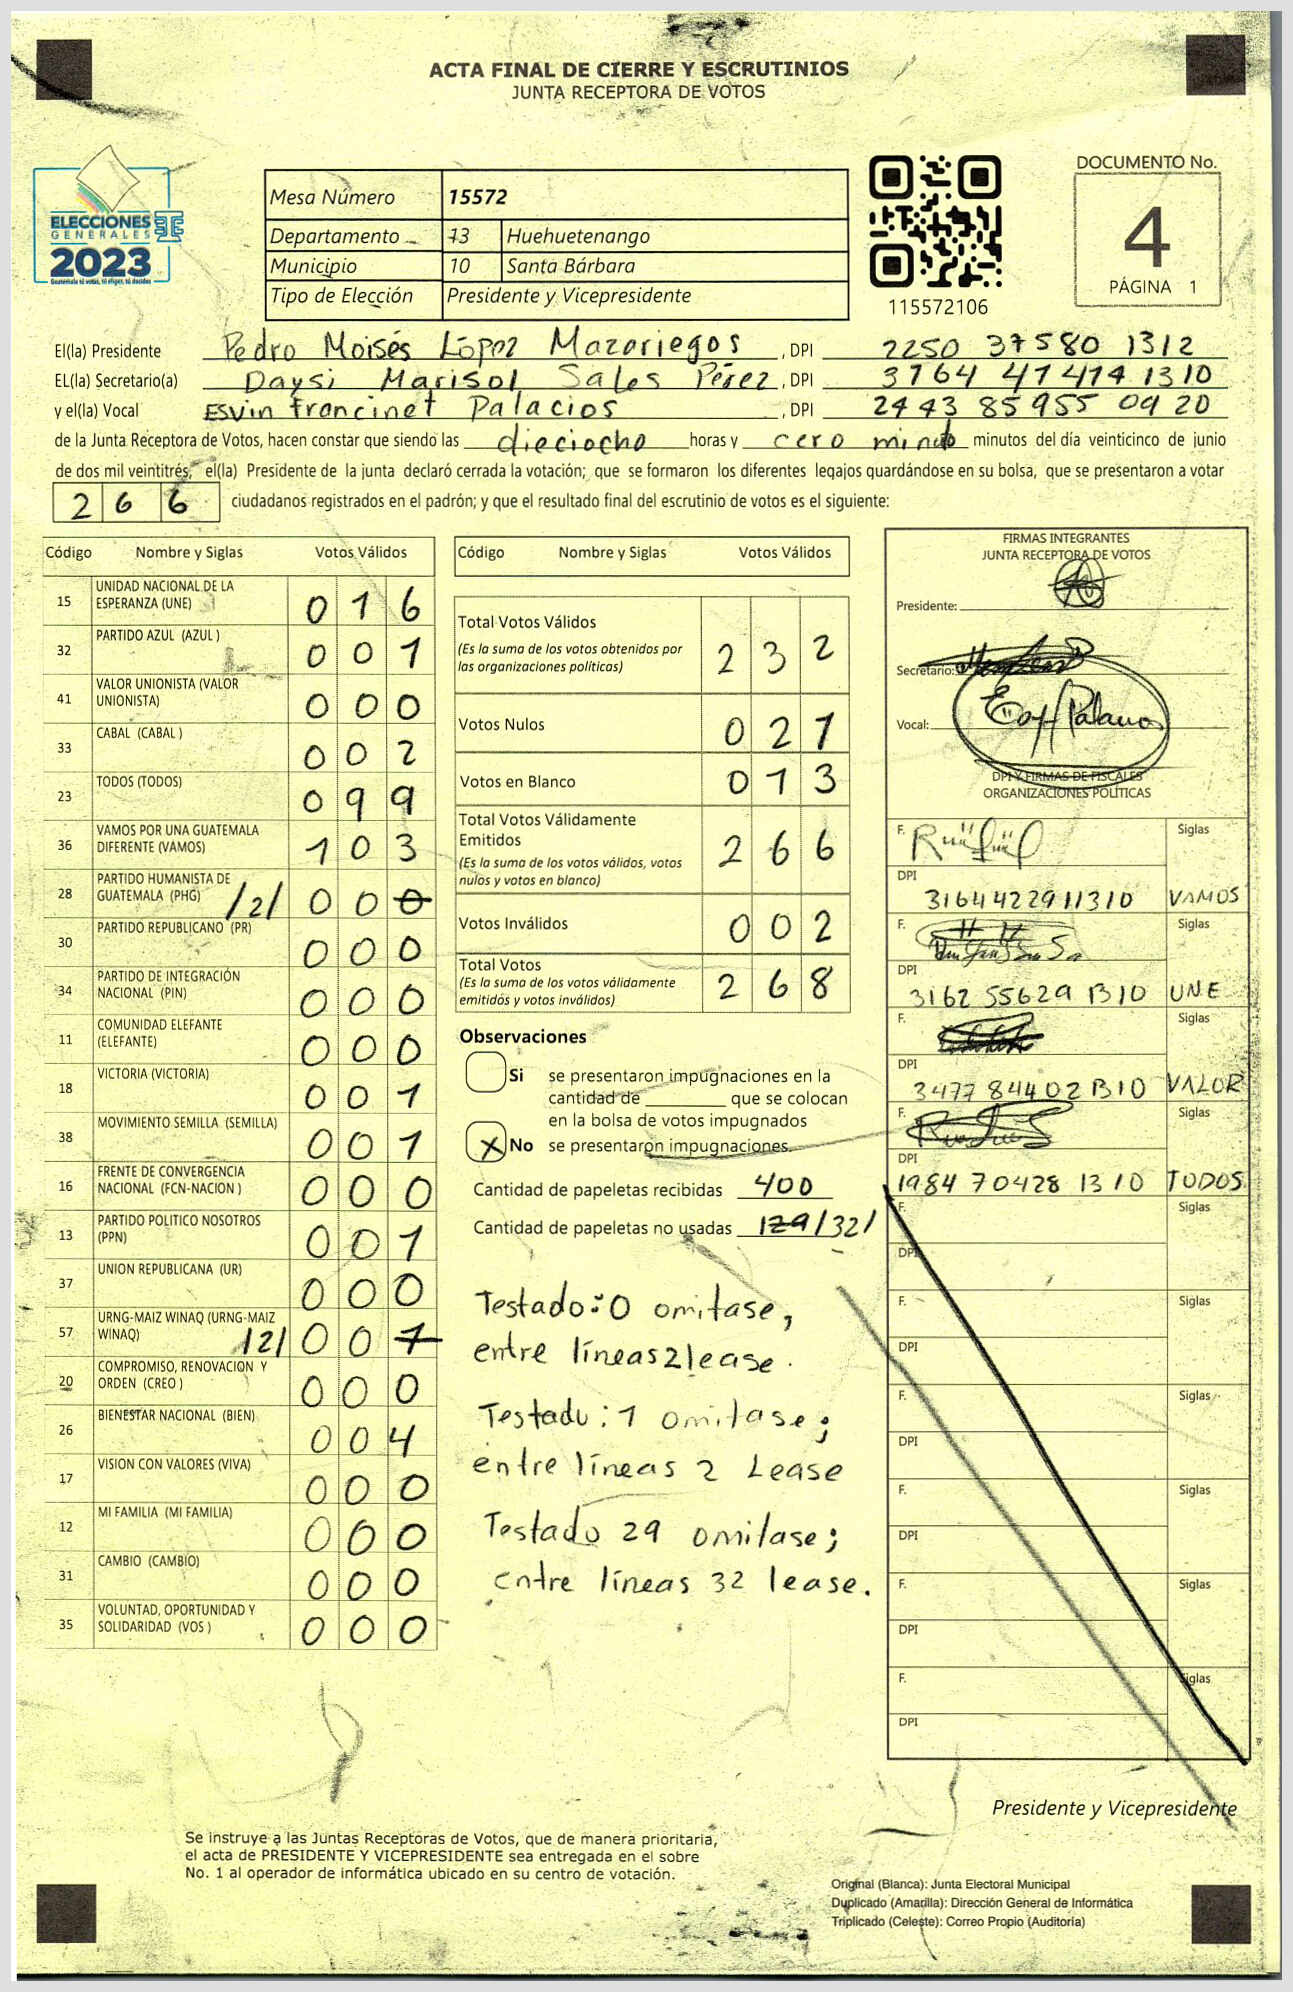 ACTA FINAL DE CIERRE Y ESCRUTINIOS
JUNTA RECEPTORA DE VOTOS
ELECCIONES
GENERALES
2023
Guatemala tú votas, tú eliges, tú decides
Mesa Número 15572
Departamento 13 Huehuetenango
Municipio 10 Santa Bárbara
Tipo de Elección Presidente y Vicepresidente
115572106
DOCUMENTO No.
4
PÁGINA 1
El(la) Presidente Pedro Moisés López Mazariegos, DPI 2250 37580 1312
EL(la) Secretario(a) Daysi Marisol Sales Pérez, DPI 3764 47474 1310
y el(la) Vocal Esvin francinet Palacios, DPI 2443 85955 0920
de la Junta Receptora de Votos, hacen constar que siendo las dieciocho horas y cero minuto minutos del día veinticinco de junio
de dos mil veintitrés; el(la) Presidente de la junta declaró cerrada la votación; que se formaron los diferentes legajos guardándose en su bolsa, que se presentaron a votar
266 ciudadanos registrados en el padrón; y que el resultado final del escrutinio de votos es el siguiente:
Código Nombre y Siglas Votos Válidos
15 UNIDAD NACIONAL DE LA ESPERANZA (UNE) 016
32 PARTIDO AZUL (AZUL ) 001
41 VALOR UNIONISTA (VALOR UNIONISTA) 000
33 CABAL (CABAL ) 002
23 TODOS (TODOS) 099
36 VAMOS POR UNA GUATEMALA DIFERENTE (VAMOS) 103
28 PARTIDO HUMANISTA DE GUATEMALA (PHG) /2/ 000
30 PARTIDO REPUBLICANO (PR) 000
34 PARTIDO DE INTEGRACIÓN NACIONAL (PIN) 000
11 COMUNIDAD ELEFANTE (ELEFANTE) 000
18 VICTORIA (VICTORIA) 001
38 MOVIMIENTO SEMILLA (SEMILLA) 001
16 FRENTE DE CONVERGENCIA NACIONAL (FCN-NACION ) 000
13 PARTIDO POLITICO NOSOTROS (PPN) 001
37 UNION REPUBLICANA (UR) 000
57 URNG-MAIZ WINAQ (URNG-MAIZ WINAQ) /2/ 001
20 COMPROMISO, RENOVACION Y ORDEN (CREO ) 000
26 BIENESTAR NACIONAL (BIEN) 004
17 VISION CON VALORES (VIVA) 000
12 MI FAMILIA (MI FAMILIA) 000
31 CAMBIO (CAMBIO) 000
35 VOLUNTAD, OPORTUNIDAD Y SOLIDARIDAD (VOS ) 000
Código Nombre y Siglas Votos Válidos
Total Votos Válidos 232
(Es la suma de los votos obtenidos por
las organizaciones políticas)
Votos Nulos 021
Votos en Blanco 013
Total Votos Válidamente
Emitidos 266
(Es la suma de los votos válidos, votos
nulos y votos en blanco)
Votos Inválidos 002
Total Votos 268
(Es la suma de los votos válidamente
emitidos y votos inválidos)
Observaciones
Si se presentaron impugnaciones en la
cantidad de ________ que se colocan
en la bolsa de votos impugnados
X No se presentaron impugnaciones.
Cantidad de papeletas recibidas 400
Cantidad de papeletas no usadas 129/32/
Testado: 0 omitase,
entre líneas 2 lease.
Testado: 1 omitase;
entre líneas 2 Lease
Testado 29 omitase;
entre líneas 32 lease.
FIRMAS INTEGRANTES
JUNTA RECEPTORA DE VOTOS
Presidente:
Secretario:
Vocal:
DPI Y FIRMAS DE FISCALES
ORGANIZACIONES POLÍTICAS
F. Siglas
DPI 3164422911310 VAMOS
F. Siglas
DPI 3162 55629 1310 UNE
F. Siglas
DPI 3477 84402 1310 VALOR
F. Siglas
DPI 1984 70428 1310 TODOS
F. Siglas
DPI
F. Siglas
DPI
F. Siglas
DPI
F. Siglas
DPI
F. Siglas
DPI
F. Siglas
DPI
Presidente y Vicepresidente
Se instruye a las Juntas Receptoras de Votos, que de manera prioritaria,
el acta de PRESIDENTE Y VICEPRESIDENTE sea entregada en el sobre
No. 1 al operador de informática ubicado en su centro de votación.
Original (Blanca): Junta Electoral Municipal
Duplicado (Amarilla): Dirección General de Informática
Triplicado (Celeste): Correo Propio (Auditoría)